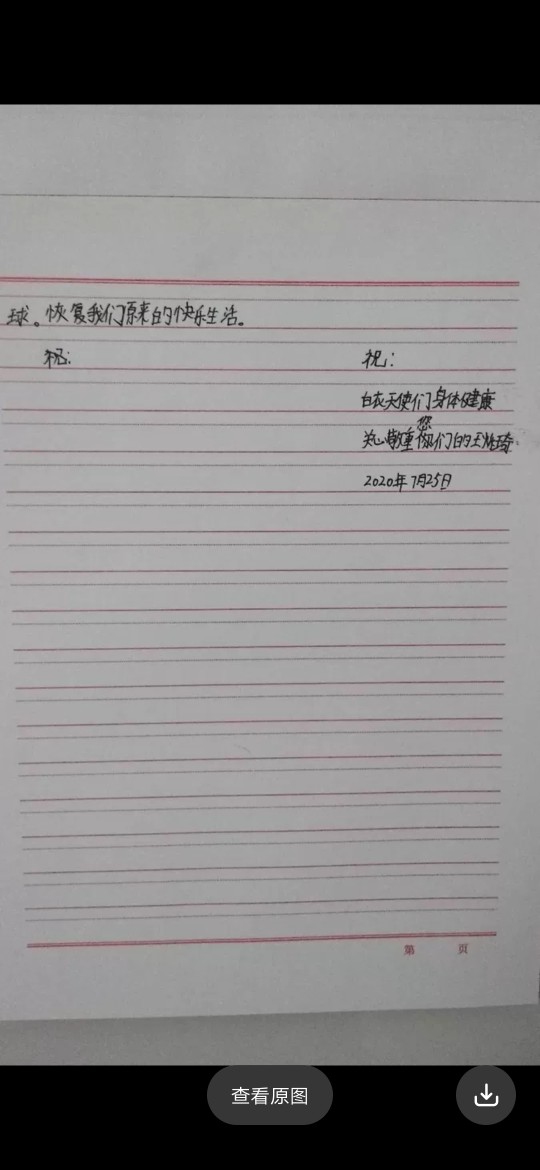 球。恢复我们原来的快乐生活。
祝: 祝:
白衣天使们身体健康
您
关心敬重你们的王
2020年7月25日
第 页
查看原图